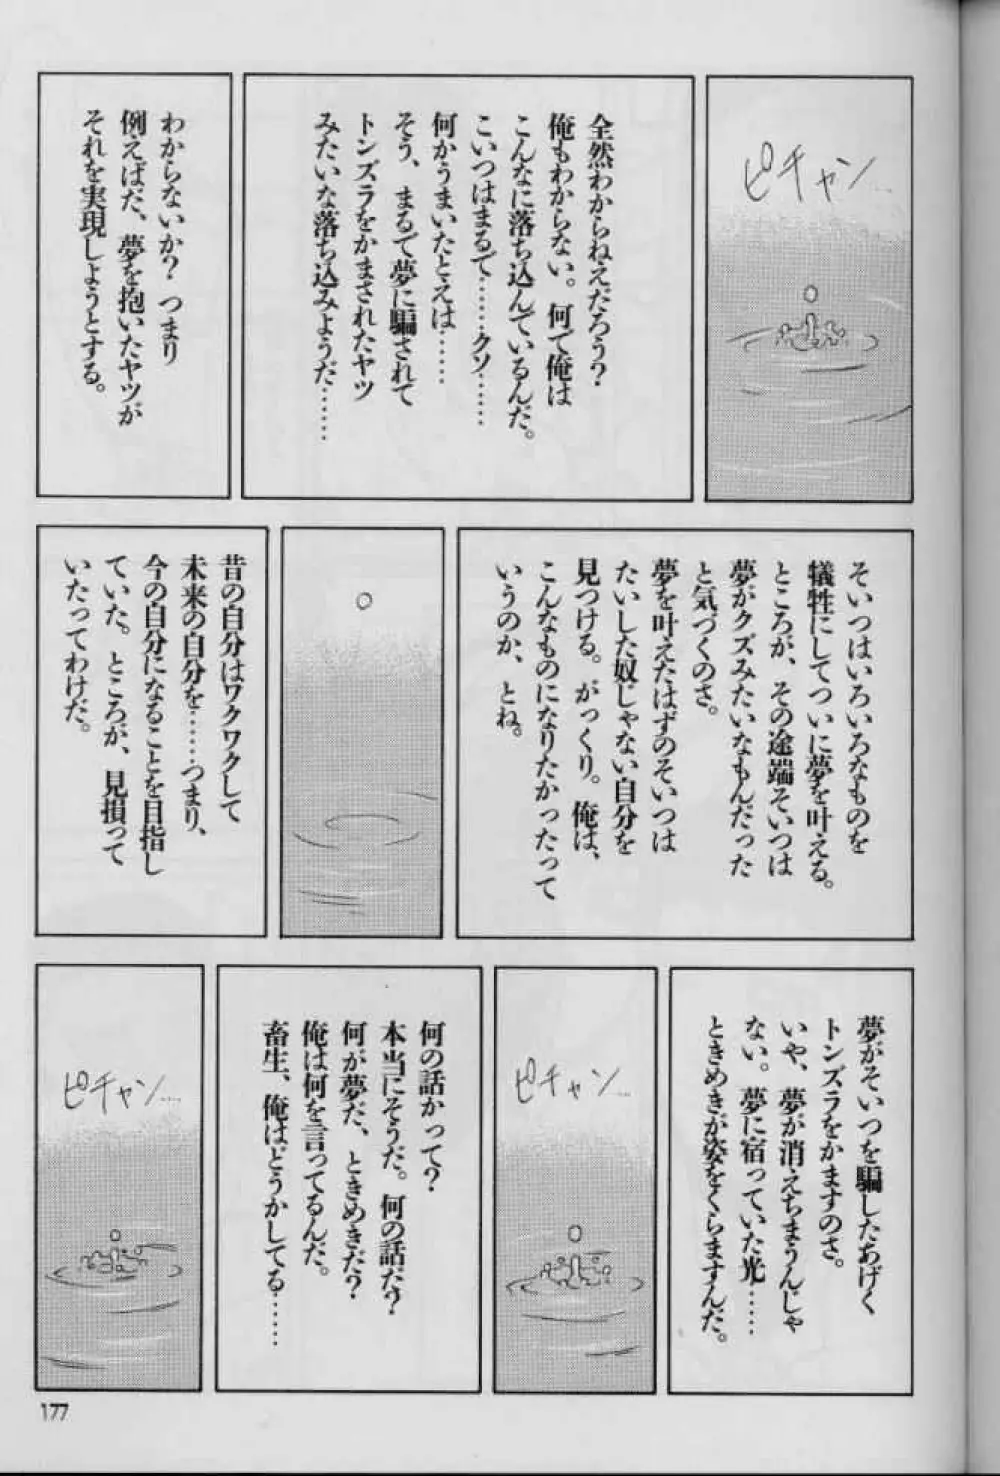 ピチャン…
全然わからねえだろう?
俺もわからない。何で俺は
こんなに落ち込んでいるんだ。
こいつはまるで……クソ……
何かうまいたとえは……
そう、まるで夢に騙されて
トンズラをかまされたヤツ
みたいな落ち込みようだ……
わからないか? つまり
例えばだ、夢を抱いたヤツが
それを実現しようとする。
そいつはいろいろなものを
犠牲にしてついに夢を叶える。
ところが、その途端そいつは
夢がクズみたいなもんだった
と気づくのさ。
夢を叶えたはずのそいつは
たいした奴じゃない自分を
見つける。がっくり。俺は、
こんなものになりたかったって
いうのか、とね。
昔の自分はワクワクして
未来の自分を……つまり、
今の自分になることを目指し
ていた。ところが、見損って
いたってわけだ。
夢がそいつを騙したあげく
トンズラをかますのさ。
いや、夢が消えちまうんじゃ
ない。夢に宿っていた光……
ときめきが姿をくらますんだ。
ピチャン…
何の話かって?
本当にそうだ。何の話だ?
何が夢だ、ときめきだ?
俺は何を言ってるんだ。
畜生、俺はどうかしてる……
ピチャン…
177